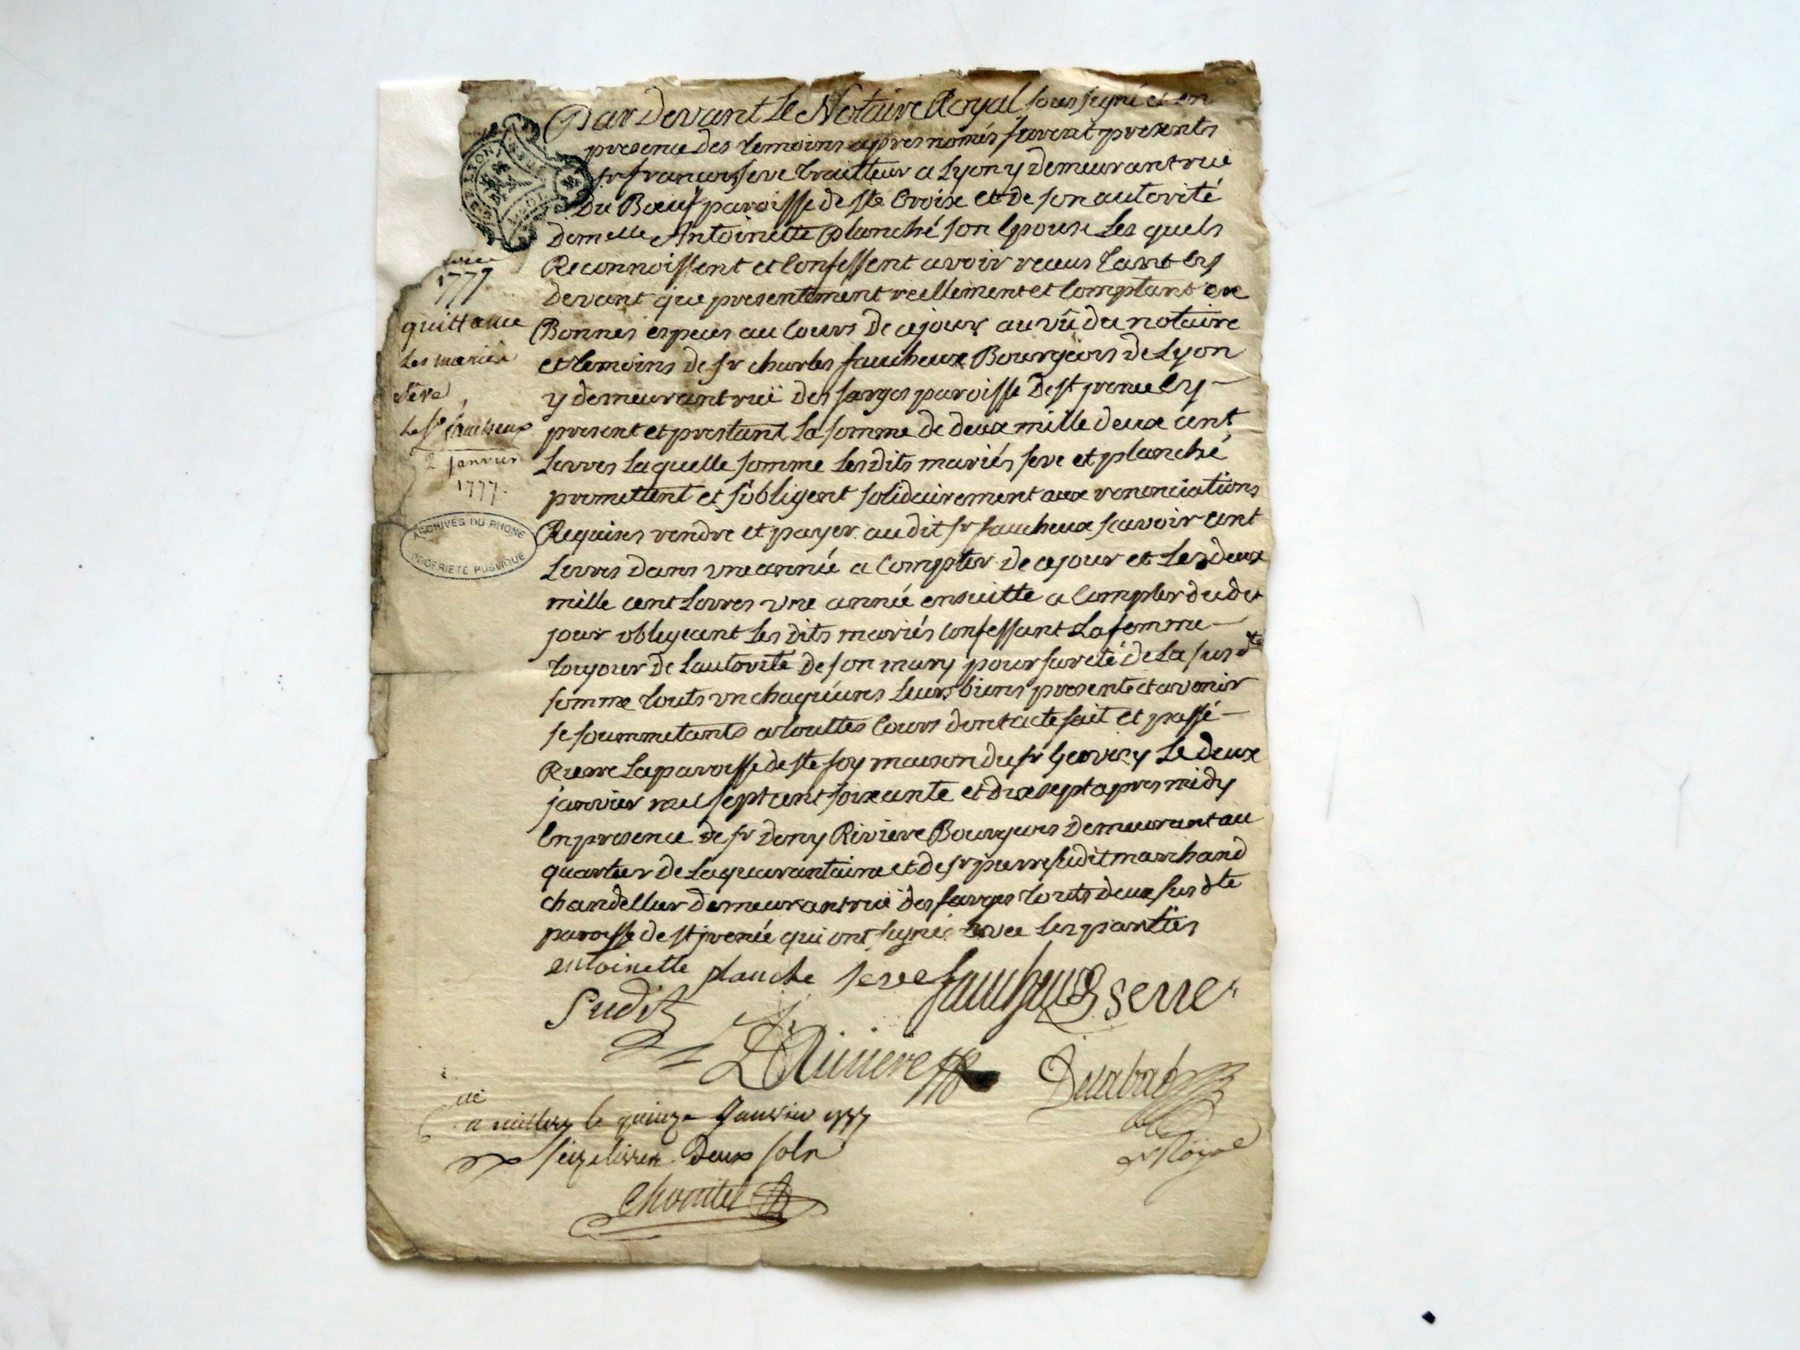 Par devant Le Notaire Royal soussigné et en
presence des temoins apres només furent presents
sr francois seve traitteur a Lyon y demeurant rue
Du Boeuf paroisse de Ste Croix et de son autorité
demelle Antoinette planché son Epouse Les quels
Reconnoissent et Confessent avoir receus tant Cy
devant que presentement reellement et Comptant en
Bonnes especes au Cours de ce jour au vû du notaire
et temoins de sr charles faucheux Bourgeois de Lyon
y demeurant rue des farges paroisse de st jrenee Cy
present et prestant La somme de deux mille deux cent
Livres Laquelle somme Lesdits mariés seve et planché
promettent et s'obligent solidairement aux renonciations
Requises rendre et payer audit sr faucheux savoir cent
Livres dans une année a Compter de ce jour et Les deux
mille cent Livres une année ensuitte a Compter dudit
jour obligeant Les dits mariés Confessant La femme
toujour de Lautorité de son mary pour sureté de La susdte
somme touts un chaqu'eunes Leurs biens presents et avenir
se soummetants a touttes Cours dont acte fait et passé
Riere La paroisse de Ste foy maison du sr Le deux
janvier mil sept cent soixante et dix sept apres midy
En presence de sr deny Riviere Bourgeois demeurant au
quartier de La quarantaine et de sr pierre sudit marchand
chandellier demeurant rue des farges touts deux susdte
paroisse de st jrenée qui ont signé avec Les parties
antoinette planche seve faucheux serre
Sudit
D Riviere Delabad
Nre Royal
1777
quittance
Les mariés
Seve
Le sr faucheux
2 janvier
1777.
ARCHIVES DU RHONE
PROPRIETE PUBLIQUE
LYON
le quinze Janvier 1777
seize livres deux sols